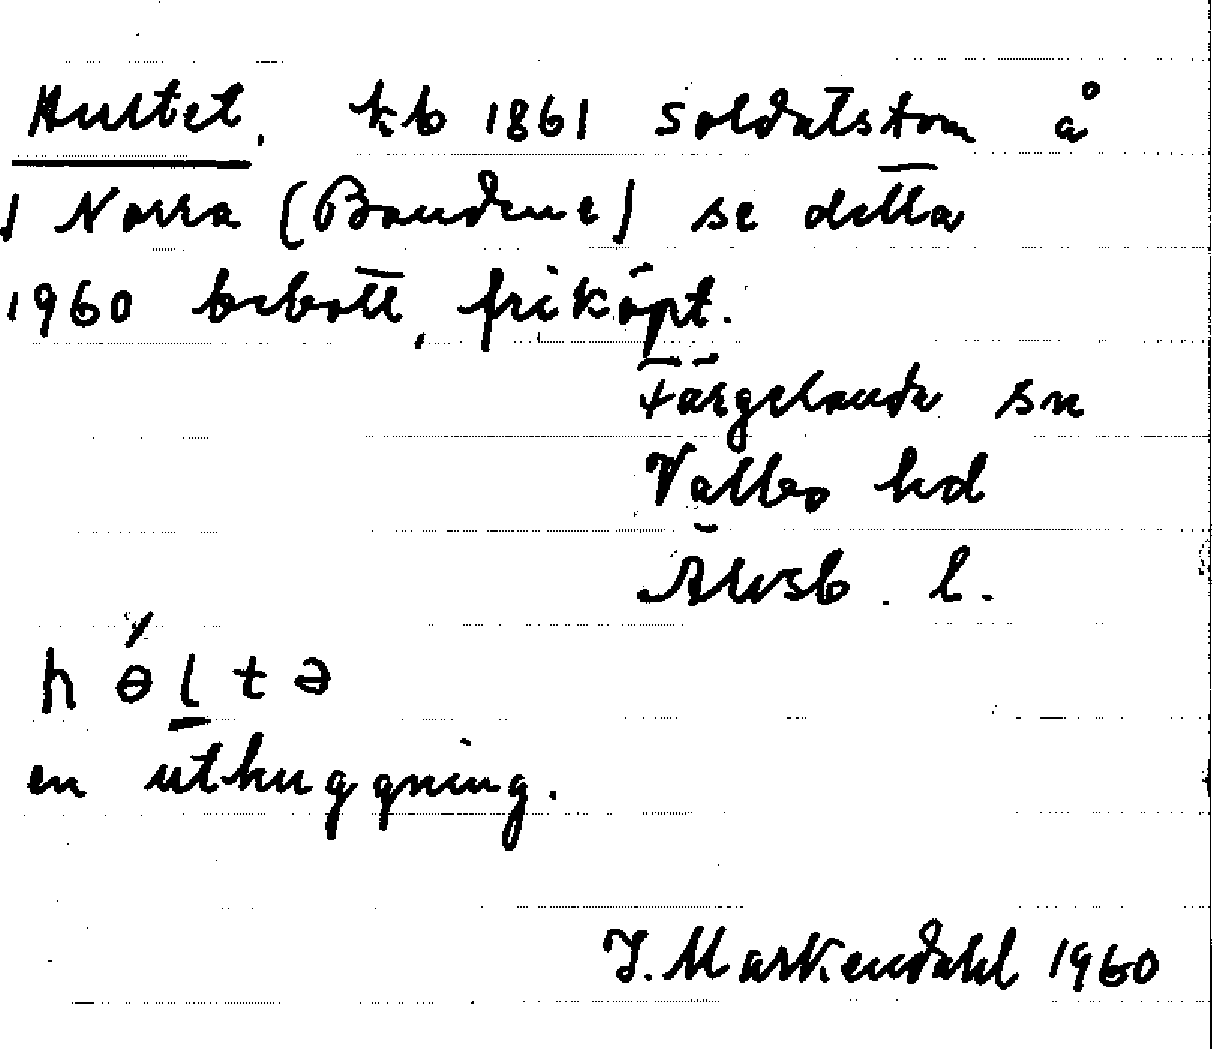 Hultet, kb 1861 soldatstom å
1 Norra (Bondene) se detta
1960 bebott, friköpt.
Färgelanda sn
Valbo hd
Älvsb. l.
h ǿ l t ə
en uthuggning.
J. Markendahl 1960